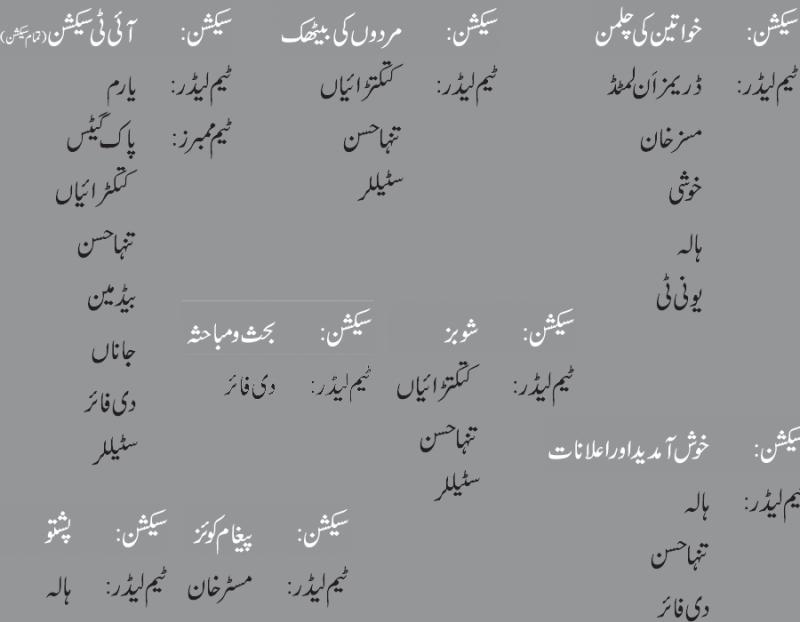 سیکشن: خواتین کی چلمن
ٹیم لیڈر: ڈریمز اَن لمٹڈ
مسز خان
خوشی
ہالہ
یونی ٹی
سیکشن: مردوں کی بیٹھک
ٹیم لیڈر: کنکڑائیاں
تنہا حسن
سٹیللر
سیکشن: آئی ٹی سیکشن (تمام سیکشن)
ٹیم لیڈر: یارم
ٹیم ممبرز: پاک گیٹس
کنکڑائیاں
تنہا حسن
بیڈ مین
جاناں
دی فائر
سٹیللر
سیکشن: شوبز
ٹیم لیڈر: کنکڑائیاں
تنہا حسن
سٹیللر
سیکشن: بحث و مباحثہ
ٹیم لیڈر: دی فائر
سیکشن: خوش آمدید اور اعلانات
ٹیم لیڈر: ہالہ
تنہا حسن
دی فائر
سیکشن: پیغام کوئز
ٹیم لیڈر: مسٹر خان
سیکشن: پشتو
ٹیم لیڈر: ہالہ